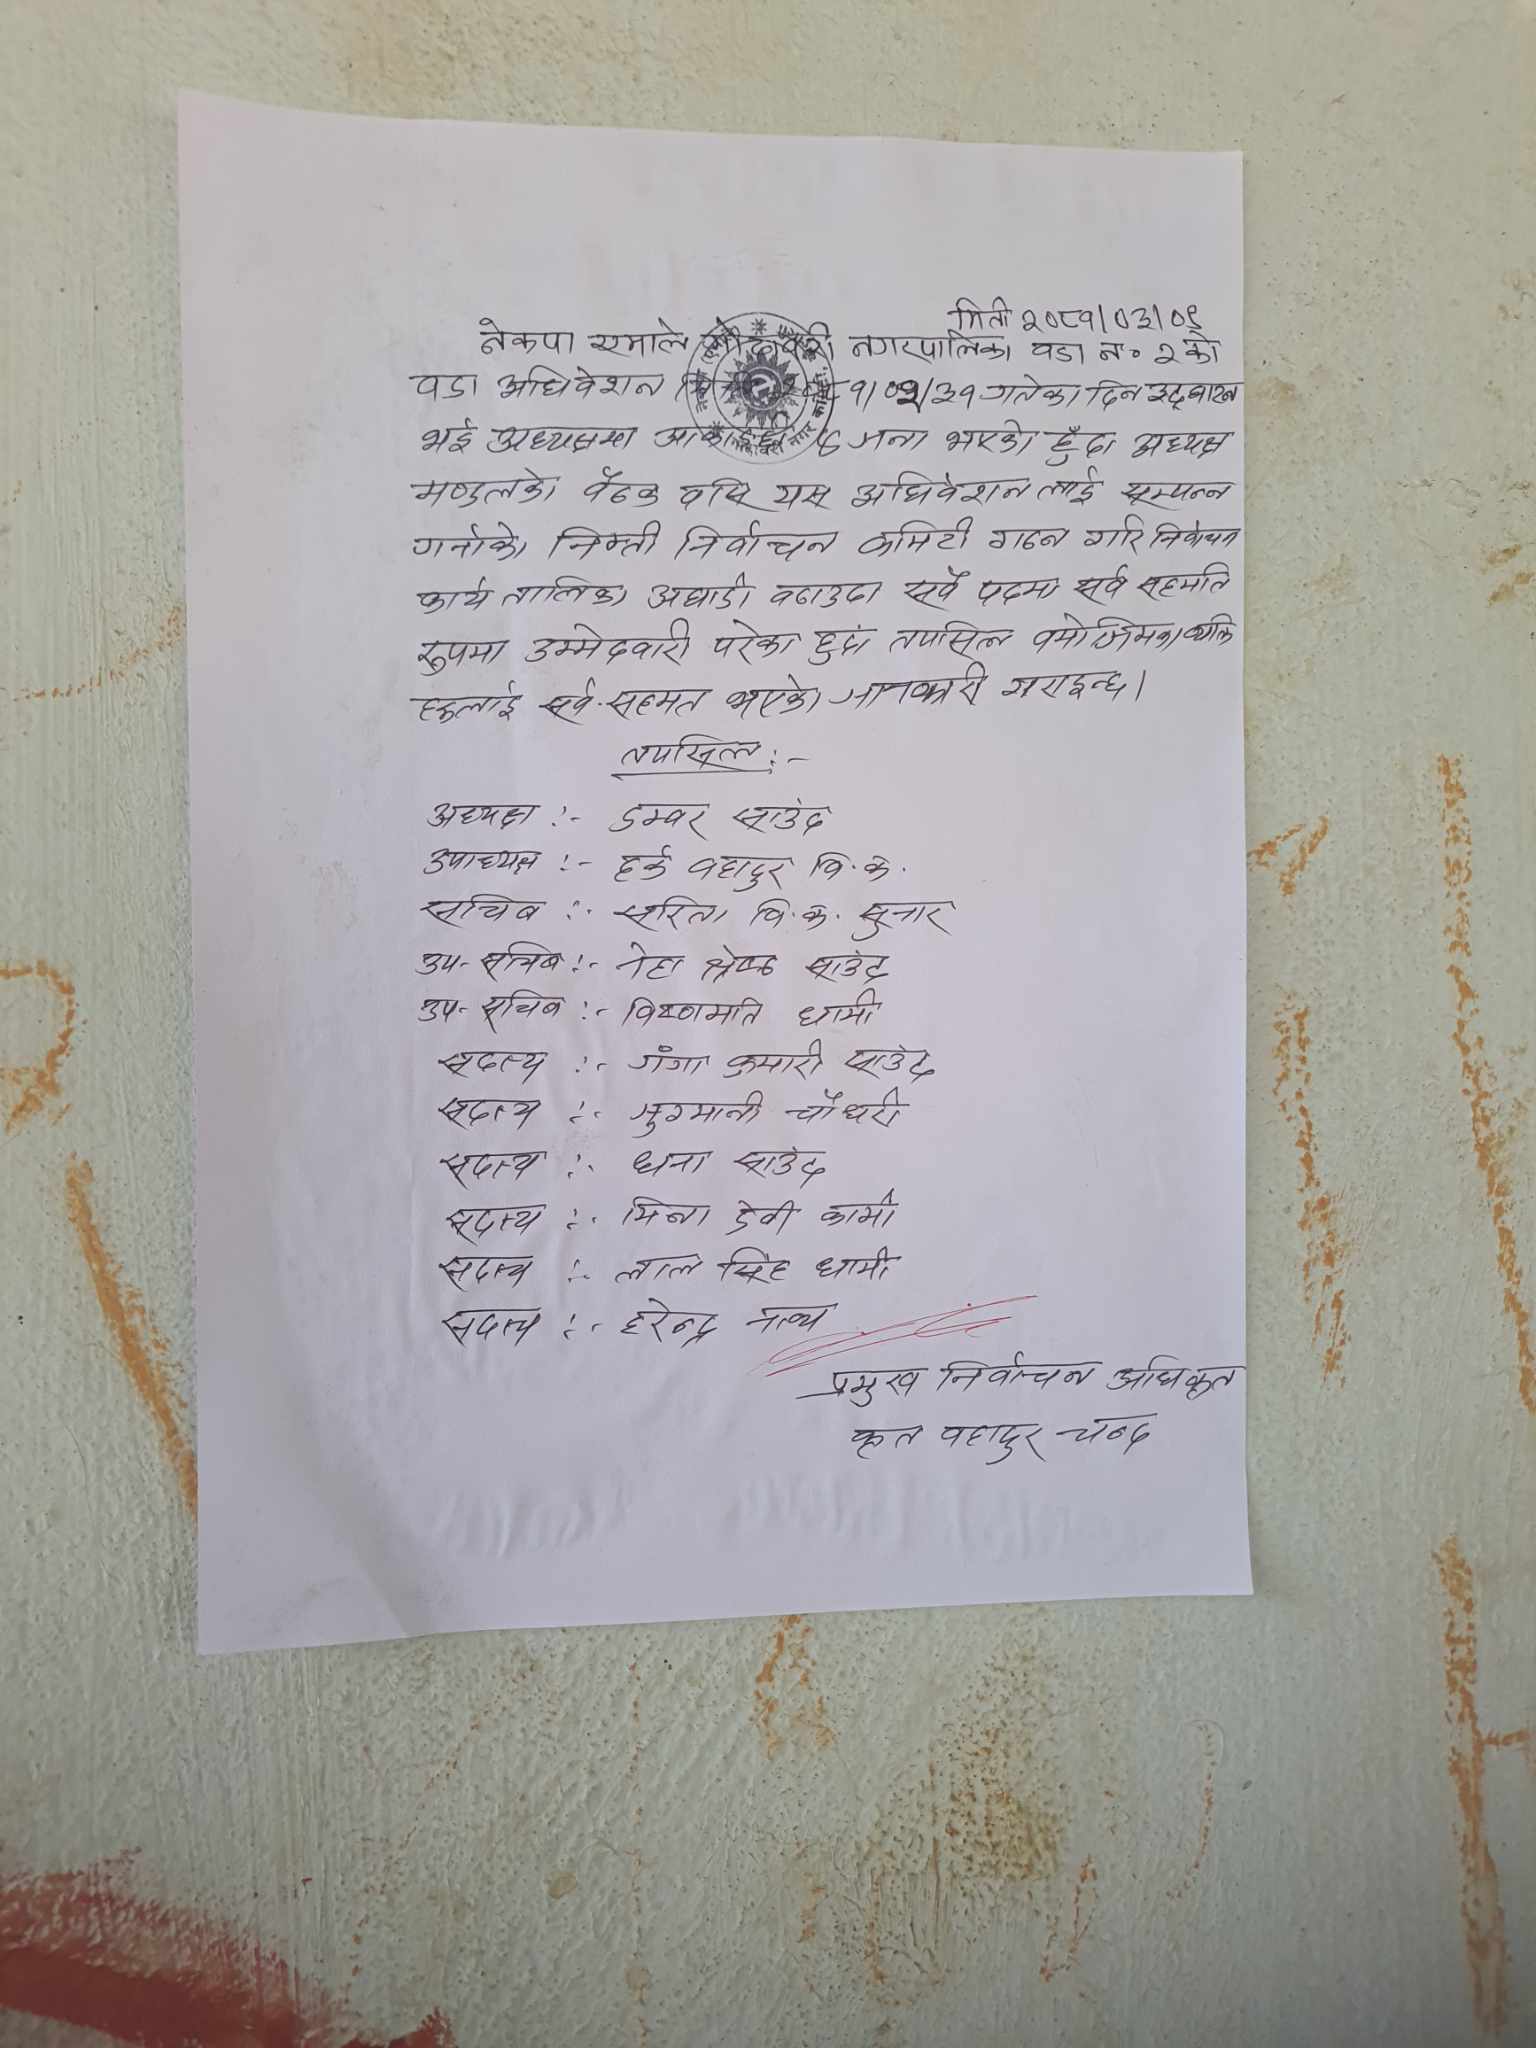 मिती २०८१/०३/०९
नेकपा एमाले गोदावरी नगरपालिका वडा नं० २ को
वडा अधिवेशन मिति २०८१/०२/३१ गतेका दिन उद्घाटन
भई अध्यक्षमा आकांक्षी ८ जना भएको हुँदा अध्यक्ष
मण्डलको बैठक वसि यस अधिवेशन लाई सम्पन्न
गर्नाको निम्ती निर्वाचन कमिटी गठन गरि निर्वाचन
कार्य तालिका अघाडी वढाउदा सवै पदमा सर्व सहमति
रुपमा उम्मेदवारी परेका हुदां तपसिल वमोजिमका व्यक्ति
हरुलाई सर्व-सहमत भएको जानकारी गराइन्छ।
तपसिल :-
अध्यक्ष :- डम्वर साउंद
उपाध्यक्ष :- हर्क वहादुर वि.क.
सचिव :- सरिता वि.क. सुनार
उप-सचिव :- नेहा श्रेष्ठ साउंद
उप-सचिव :- विष्णमति धामी
सदस्य :- गंगा कुमारी साउंद
सदस्य :- जुगमानी चौधरी
सदस्य :- धना साउंद
सदस्य :- मिना देवी कामी
सदस्य :- लाल सिंह धामी
सदस्य :- हरेन्द्र नाथ
प्रमुख निर्वाचन अधिकृत
कृत वहादुर चन्द